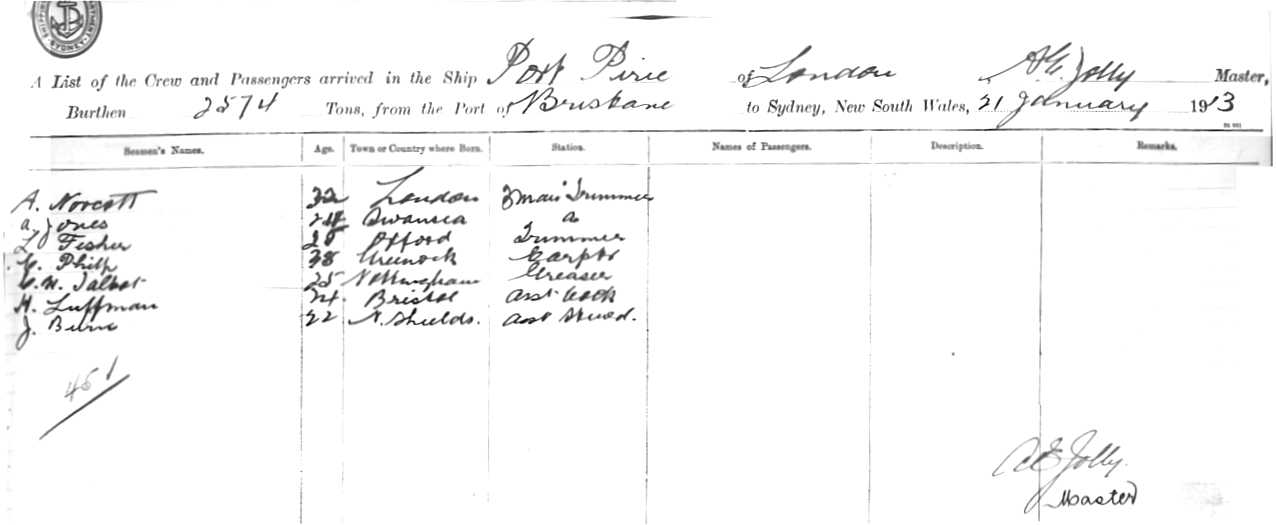 SYDNEY
A List of the Crew and Passengers arrived in the Ship Port Pirie of London A E Jolly Master,
Burthen 2574 Tons, from the Port of Brisbane to Sydney, New South Wales, 21 January 1913
Seamen's Names. Age. Town or Country where Born. Station. Names of Passengers. Description. Remarks.
A. Norcott 32 London Trimmer
A. Jones 24 Swansea
L. Fisher 28 Oxford Trimmer
C. Philp 38 Greenock Carptr
C. W. Talbot 25 Nottingham Greaser
H. Luffman 24 Bristol Asst Cook
J. Burn 22 N. Shields. Asst Stewd.
451
A E Jolly.
Master